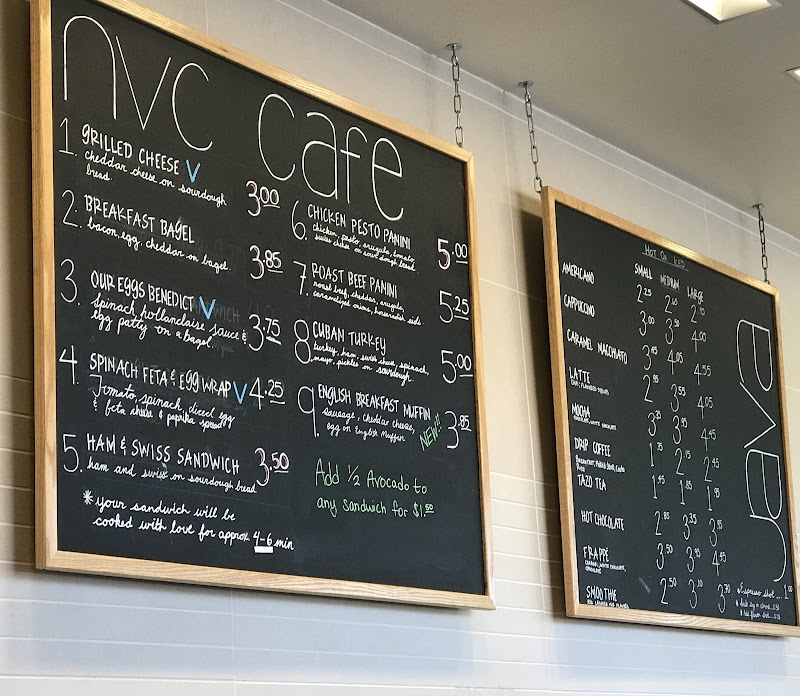 nvc cafe
1. GRILLED CHEESE V 3.00
cheddar cheese on sourdough
bread
2. BREAKFAST BAGEL 3.85
bacon, egg, cheddar on bagel.
3. OUR EGGS BENEDICT V 3.75
spinach, hollandaise sauce &
egg patty on a bagel
4. SPINACH FETA & EGG WRAP V 4.25
Tomato, spinach, diced egg
& feta cheese & paprika spread
5. HAM & SWISS SANDWICH 3.50
ham and swiss on sourdough bread
*your sandwich will be
cooked with love for approx. 4-6 min
6. CHICKEN PESTO PANINI 5.00
chicken, pesto, arugula, tomato,
swiss cheese on sourdough bread
7. ROAST BEEF PANINI 5.25
roast beef, cheddar, arugula,
caramelized onions, horseradish
8. CUBAN TURKEY 5.00
turkey, ham, swiss cheese, spinach,
mayo, pickles on sourdough.
9. ENGLISH BREAKFAST MUFFIN 3.85
sausage, cheddar cheese,
egg on English Muffin
NEW!!
Add 1/2 Avocado to
any sandwich for $1.50
Java
HOT OR ICED
SMALL MEDIUM LARGE
AMERICANO 2.25 2.65
CAPPUCCINO 3.00 3.50 4.00
CARAMEL MACCHIATO 3.45 4.05 4.55
LATTE 2.95 3.55 4.05
MOCHA 3.35 3.95 4.45
DRIP COFFEE 1.35 2.15 2.45
TAZO TEA 1.45 1.85 1.95
HOT CHOCOLATE 2.85 3.35 3.95
FRAPPÉ 3.50 3.95 4.45
SMOOTHIE 2.50 3.10 3.70
*Espresso Shot... 1.00